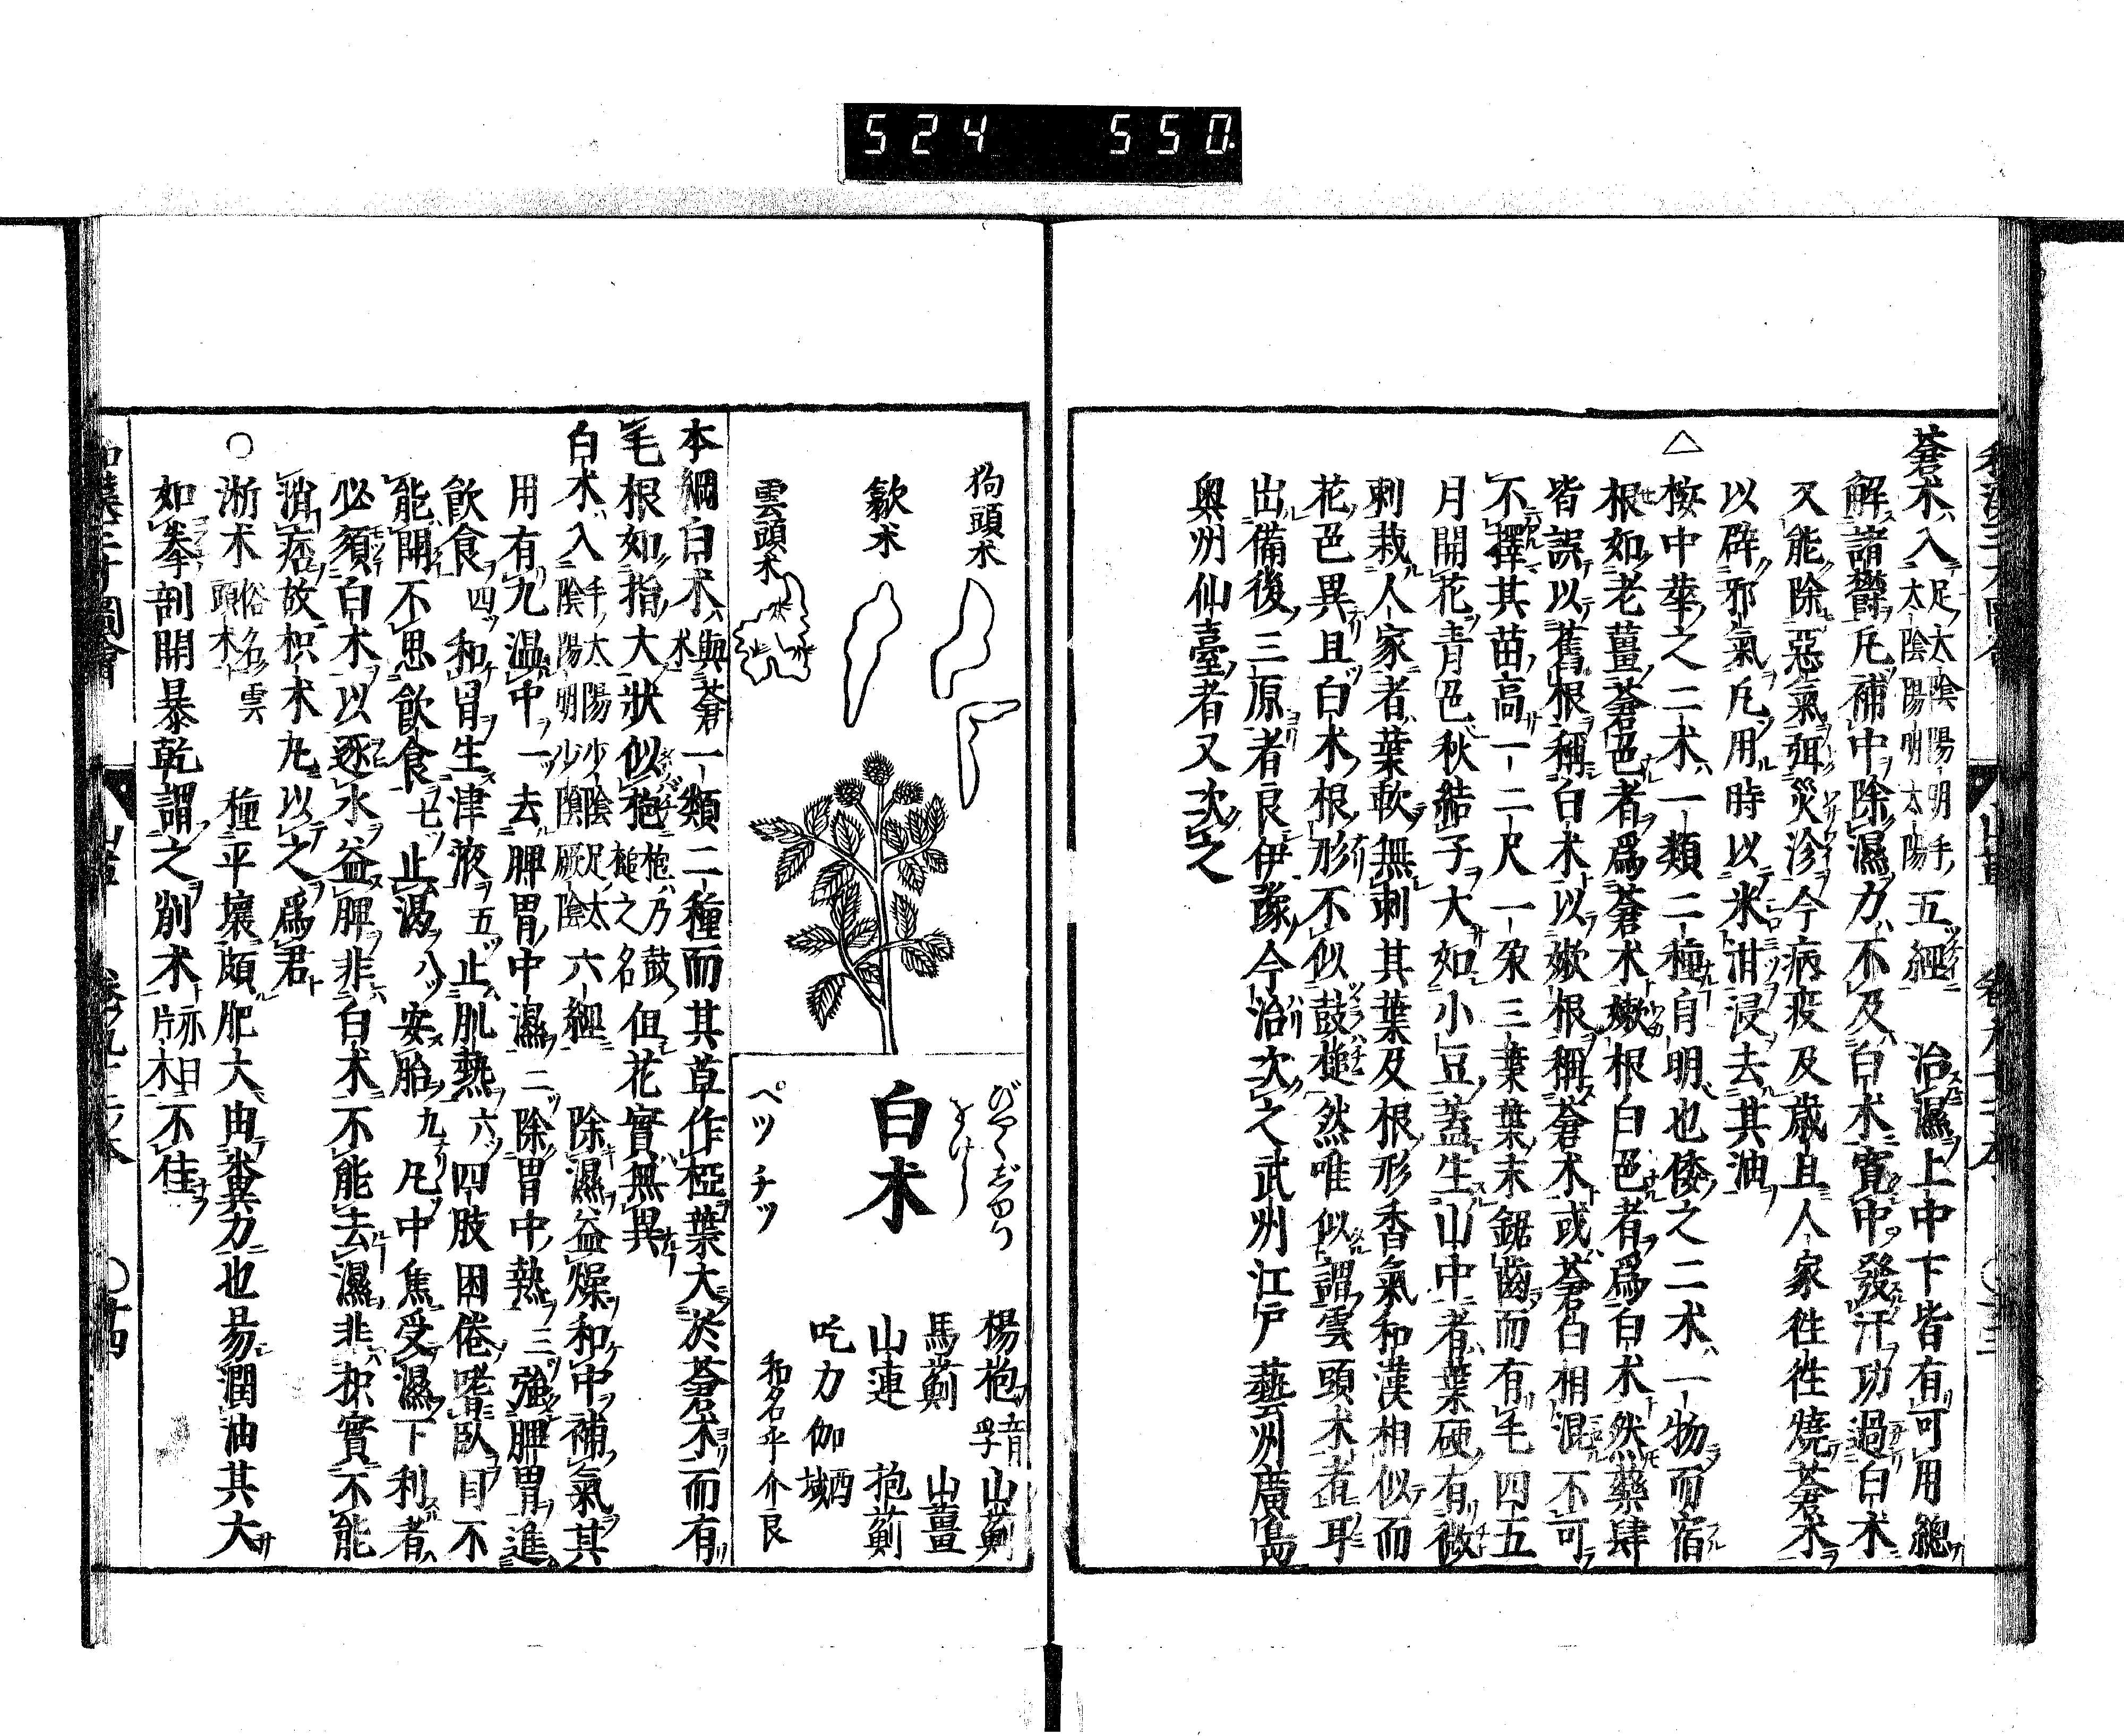 524 550
蒼朮入足太陰陽明手太陰陽明太陽五經 治濕上中下皆有可用總
解諸鬱凡補中除濕力不及白朮寛中發汗功過白朮
又能除惡氣弭災沴今病疫及歳旦人家徃徃燒蒼朮
以辟邪氣凡用時以米泔浸去其油
△按中華之二朮一類二種自明也倭之二朮一物而宿
根如老薑蒼色者爲蒼朮嫩根白色者爲白朮然藥肆
皆誤以舊根稱白朮以嫩根稱蒼朮或蒼白相混不可
不擇其苗高一二尺一朶三葉葉末鋸齒而有毛四五
月開花青色秋結子大如小豆蓋生山中者葉硬有微
刺栽人家者葉軟無刺其葉及根形香氣和漢相似而
花色異且白朮根形不似鼓槌然唯似謂雲頭朮者耳
出備後三原者良伊豫今治次之武州江戸藝州廣島
奥州仙臺者又次之
狗頭朮
歙朮
雲頭朮
びやくじゆつ
をけら
白朮
ペツ チツ
楊枹音孚 山薊
馬薊 山薑
山連 抱薊
吃力伽西域
和名乎介良
本綱白朮與蒼朮一類二種而其草作椏葉大於蒼朮而有
毛根如指大狀似枹枹乃鼓槌之名但花實無異
白朮入手太陽少陰足太陰陽明少陰厥陰六經 除濕益燥和中補氣其
用有九温中一去脾胃中濕二除胃中熱三強脾胃進
飲食四和胃生津液五止肌熱六四肢困倦嗜臥目不
能開不思飲食七止渇八安胎九凡中焦受濕下利者
必須白朮以逐水益脾非白朮不能去濕非枳實不能
消痞故枳朮丸以之爲君
○浙朮俗名雲頭朮 種平壤頗肥大由糞力也易潤油其大
如拳剖開暴乾謂之削朮亦曰片朮不佳